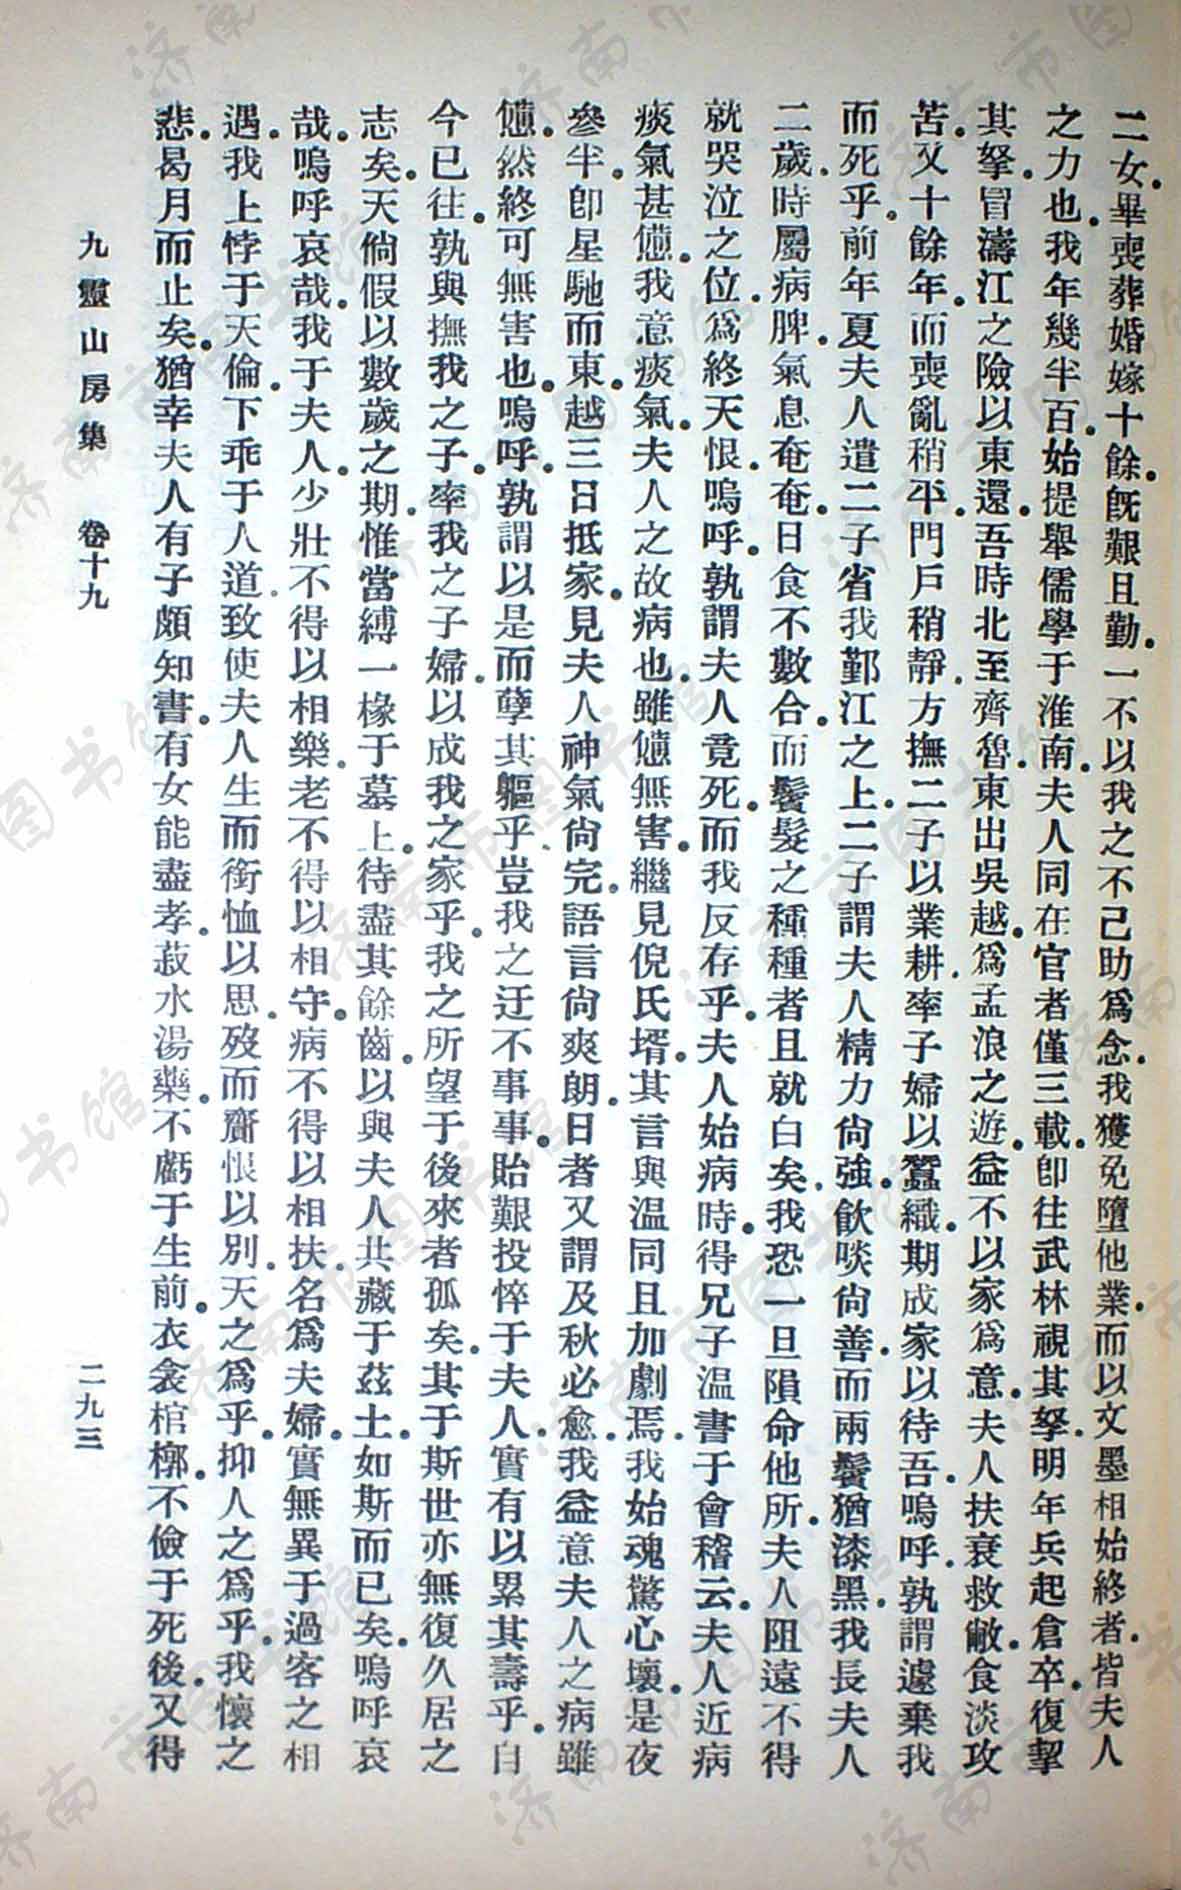 二女。畢喪葬婚嫁十餘。旣艱且勤。一不以我之不己助爲念。我獲免墮他業。而以文墨相始終者。皆夫人
之力也。我年幾半百。始提舉儒學于淮南。夫人同在官者僅三載。卽往武林視其孥。明年兵起倉卒。復挈
其孥。冒濤江之險以東還。吾時北至齊魯。東出吳越。爲孟浪之遊。益不以家爲意。夫人扶衰救敝。食淡攻
苦。又十餘年。而喪亂稍平。門戶稍靜。方撫二子以業耕。率子婦以蠶織。期成家以待吾。嗚呼。孰謂遽棄我
而死乎。前年夏夫人遣二子省我鄞江之上。二子謂夫人精力尙強。飲啖尙善。而兩鬢猶漆黑。我長夫人
二歲。時屬病脾。氣息奄奄。日食不數合。而鬢髮之種種者且就白矣。我恐一旦隕命他所。夫人阻遠不得
就哭泣之位。爲終天恨。嗚呼。孰謂夫人竟死。而我反存乎。夫人始病時。得兄子温書于會稽云。夫人近病
痰氣甚憊。我意痰氣。夫人之故病也。雖憊無害。繼見倪氏壻。其言與温同。且加劇焉。我始魂驚心壞。是夜
參半。卽星馳而東。越三日抵家。見夫人神氣尙完。語言尙爽朗。日者又謂及秋必愈。我益意夫人之病雖
憊。然終可無害也。嗚呼。孰謂以是而孽其軀乎。豈我之迂不事事。貽艱投悴于夫人。實有以累其壽乎。自
今已往。孰與撫我之子。率我之子婦。以成我之家乎。我之所望于後來者孤矣。其于斯世亦無復久居之
志矣。天倘假以數歲之期。惟當縛一椽于墓上。待盡其餘齒。以與夫人共藏于茲土。如斯而已矣。嗚呼哀
哉。嗚呼哀哉。我于夫人。少壯不得以相樂。老不得以相守。病不得以相扶。名爲夫婦。實無異于過客之相
遇。我上悖于天倫。下乖于人道。致使夫人生而銜恤以思。歿而齎恨以別。天之爲乎。抑人之爲乎。我懷之
悲。曷月而止矣。猶幸夫人有子頗知書。有女能盡孝。菽水湯藥。不虧于生前。衣衾棺槨。不儉于死後。又得
九靈山房集 卷十九 二九三